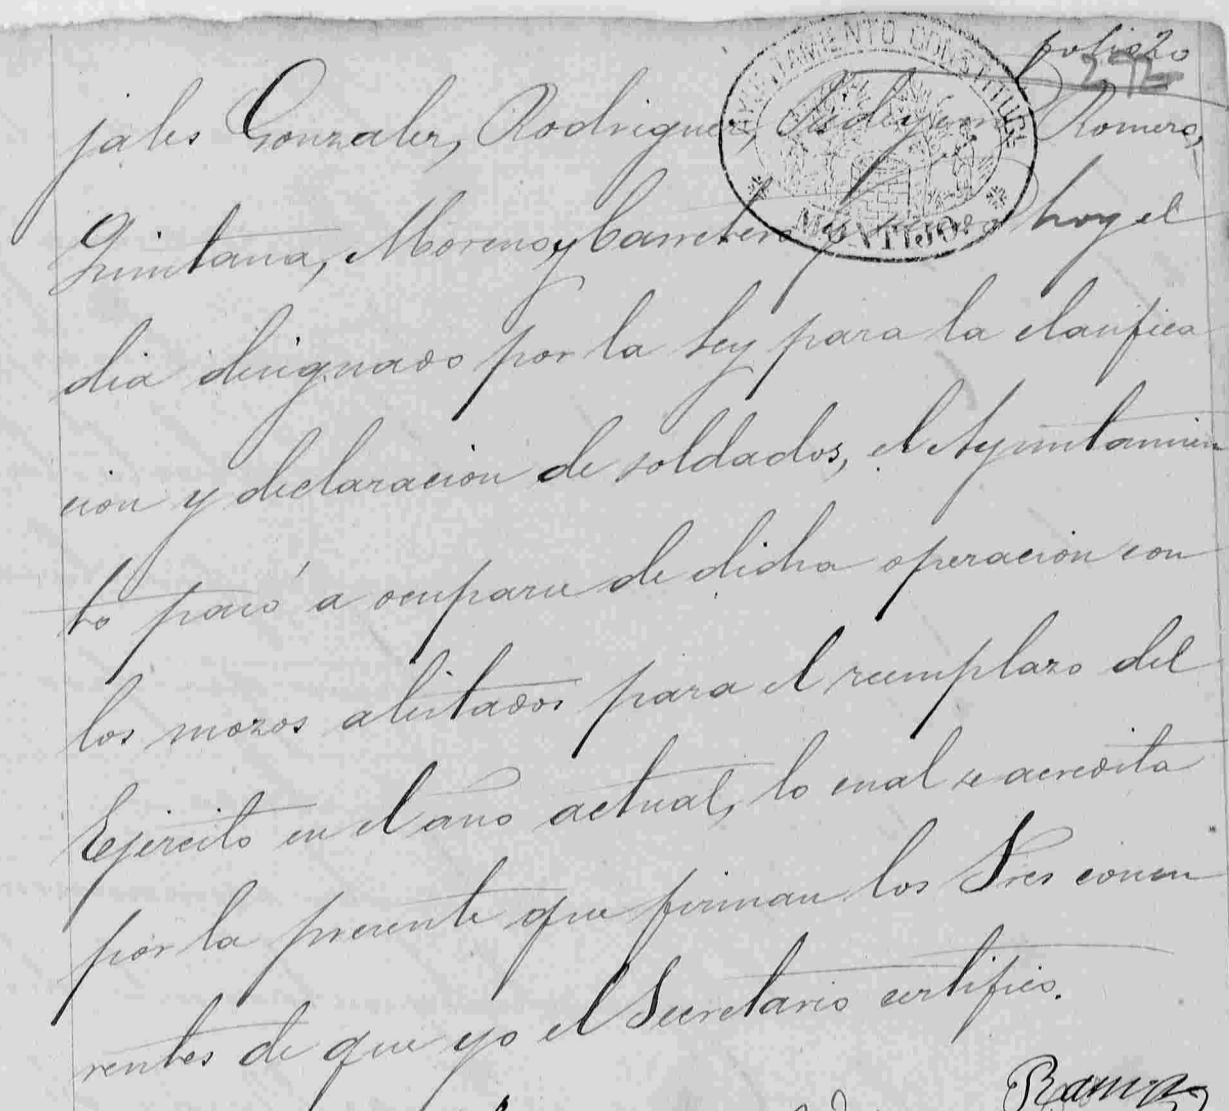 folio 20
292
AYUNTAMIENTO CONSTITUCL
MONTIJO
jales Gonzalez, Rodriguez, Romero,
Quintana, Moreno y Carretero hoy el
dia designado por la Ley para la clasifica
cion y declaracion de soldados, el Ayuntamien
to pasó a ocuparse de dicha operacion con
los mozos alistados para el reemplazo del
Ejército en el año actual, lo cual se acredita
por la presente que firman los Sres concu
rrentes de que yo el Secretario certifico.